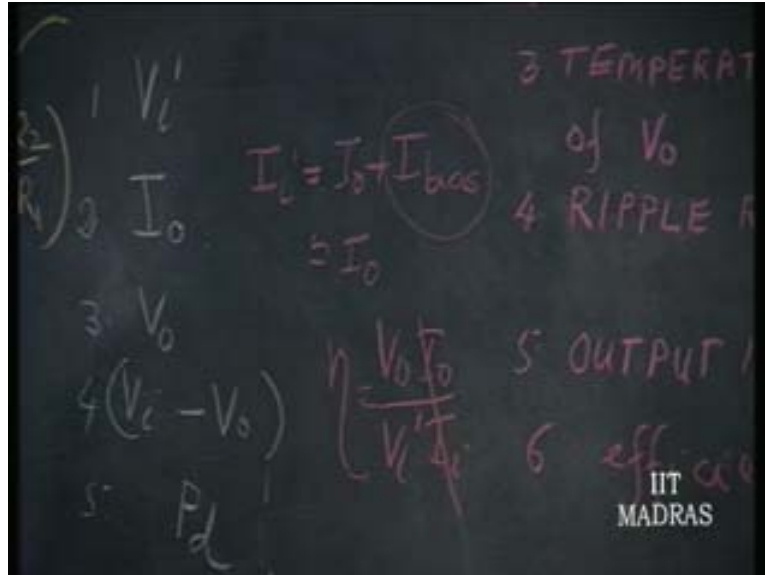 1 Vi
2 Io
3 Vo
4 (Vi - Vo)
5 Pd
R1
Ii = Io + Ibias
= Io
η = VoIo / ViIi
3 TEMPERAT
of Vo
4 RIPPLE R
5 OUTPUT
6 efficie
IIT
MADRAS